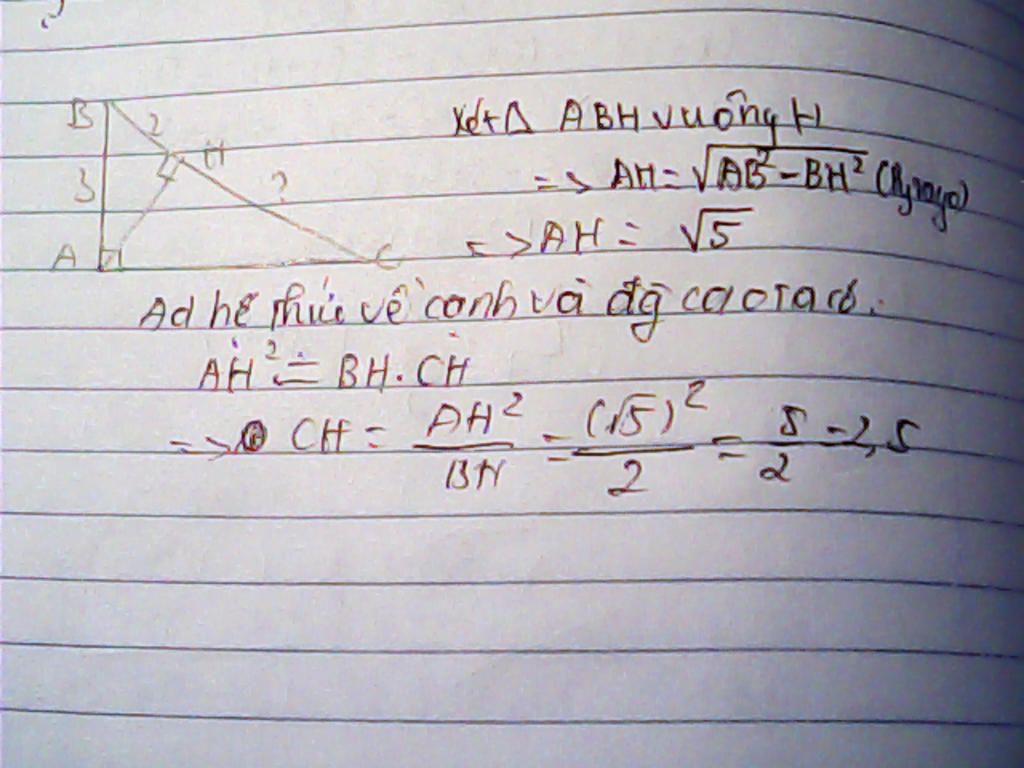 B 2 H
3 ?
A C
Xét Δ ABH vuông H
=> AH = √AB² - BH² (Pytago)
=> AH = √5
Ad hệ thức về cạnh và đg cao ta có:
AH² = BH. CH
=> CH = AH²/BH = (√5)²/2 = 5/2 = 2,5